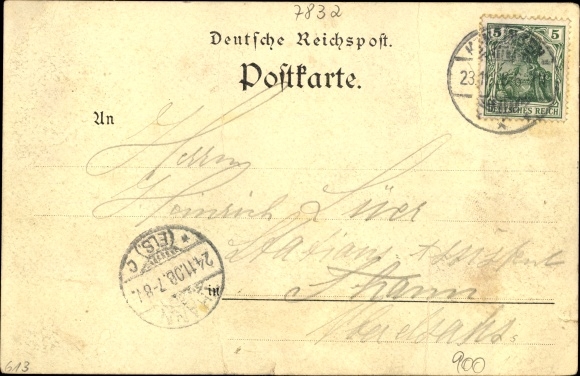 7832
Deutsche Reichspost.
Postkarte.
5 5
DEUTSCHES REICH
23.
An
Herrn
Heinrich Lüer
Stations-Assistent
in Thann
(ELS.) C
24.11.08.7-8
613
900